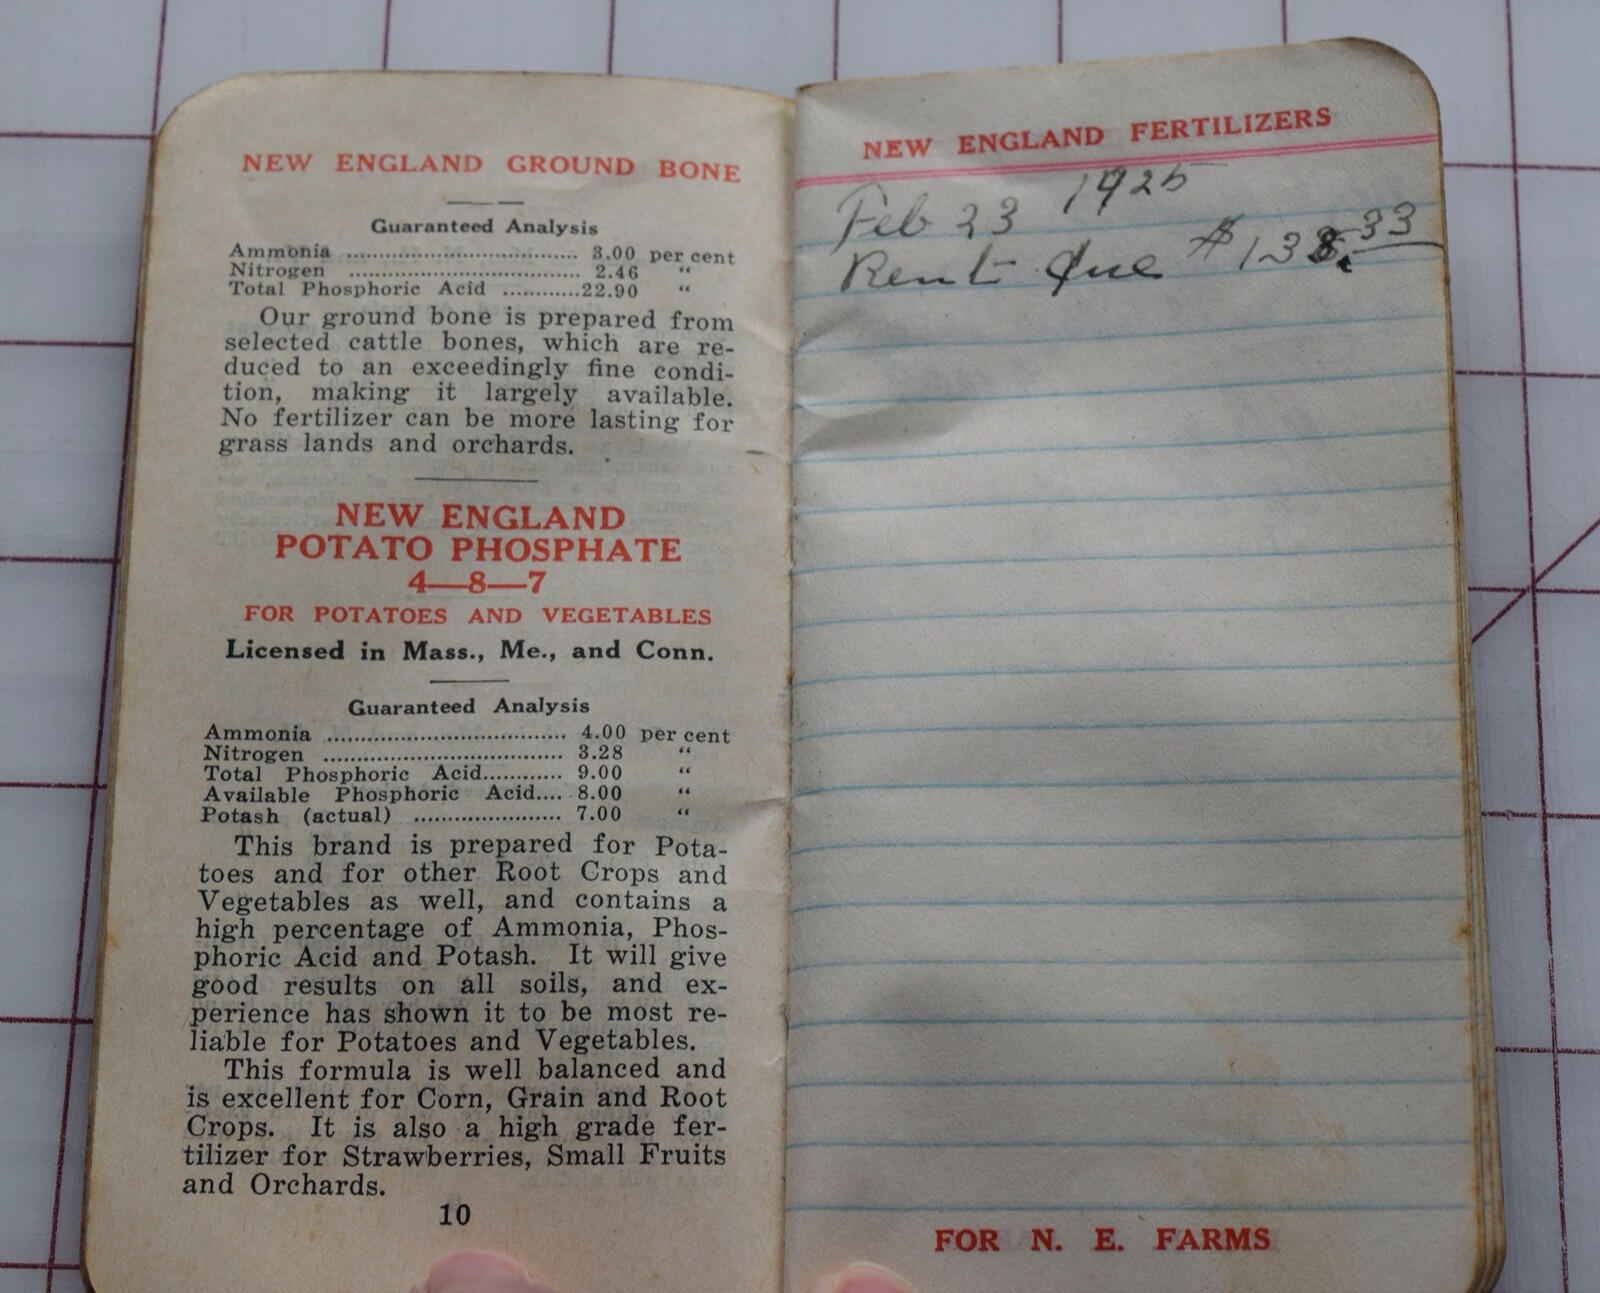 NEW ENGLAND GROUND BONE
Guaranteed Analysis
Ammonia .................................. 3.00 per cent
Nitrogen .................................. 2.46 “
Total Phosphoric Acid ............22.90 “
Our ground bone is prepared from
selected cattle bones, which are re-
duced to an exceedingly fine condi-
tion, making it largely available.
No fertilizer can be more lasting for
grass lands and orchards.
NEW ENGLAND
POTATO PHOSPHATE
4—8—7
FOR POTATOES AND VEGETABLES
Licensed in Mass., Me., and Conn.
Guaranteed Analysis
Ammonia .................................... 4.00 per cent
Nitrogen .................................... 3.28 “
Total Phosphoric Acid............ 9.00 “
Available Phosphoric Acid.... 8.00 “
Potash (actual) ...................... 7.00 “
This brand is prepared for Pota-
toes and for other Root Crops and
Vegetables as well, and contains a
high percentage of Ammonia, Phos-
phoric Acid and Potash. It will give
good results on all soils, and ex-
perience has shown it to be most re-
liable for Potatoes and Vegetables.
This formula is well balanced and
is excellent for Corn, Grain and Root
Crops. It is also a high grade fer-
tilizer for Strawberries, Small Fruits
and Orchards.
10
NEW ENGLAND FERTILIZERS
Feb 23 1925
Rent due
FOR N. E. FARMS